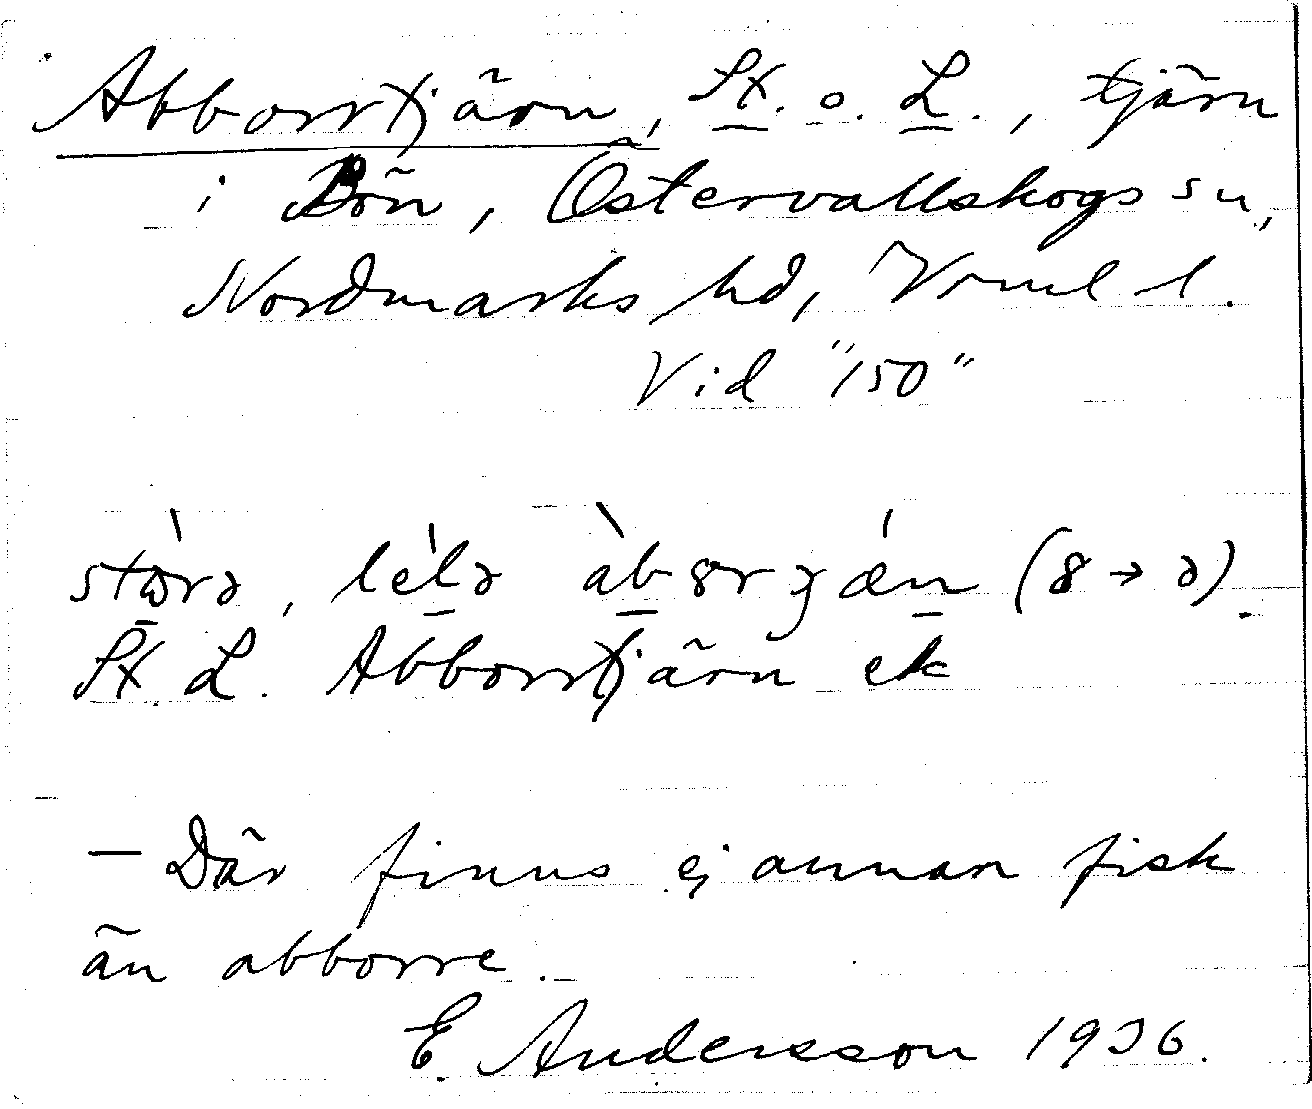 Abborrtjärn, St. o. L., tjärn
i Bön, Östervallskogs sn,
Nordmarks hd, Vrml l.
Vid "150"
St. L. Abborrtjärn ek
— Där finns ej annan fisk
än abborre.
E. Andersson 1936.